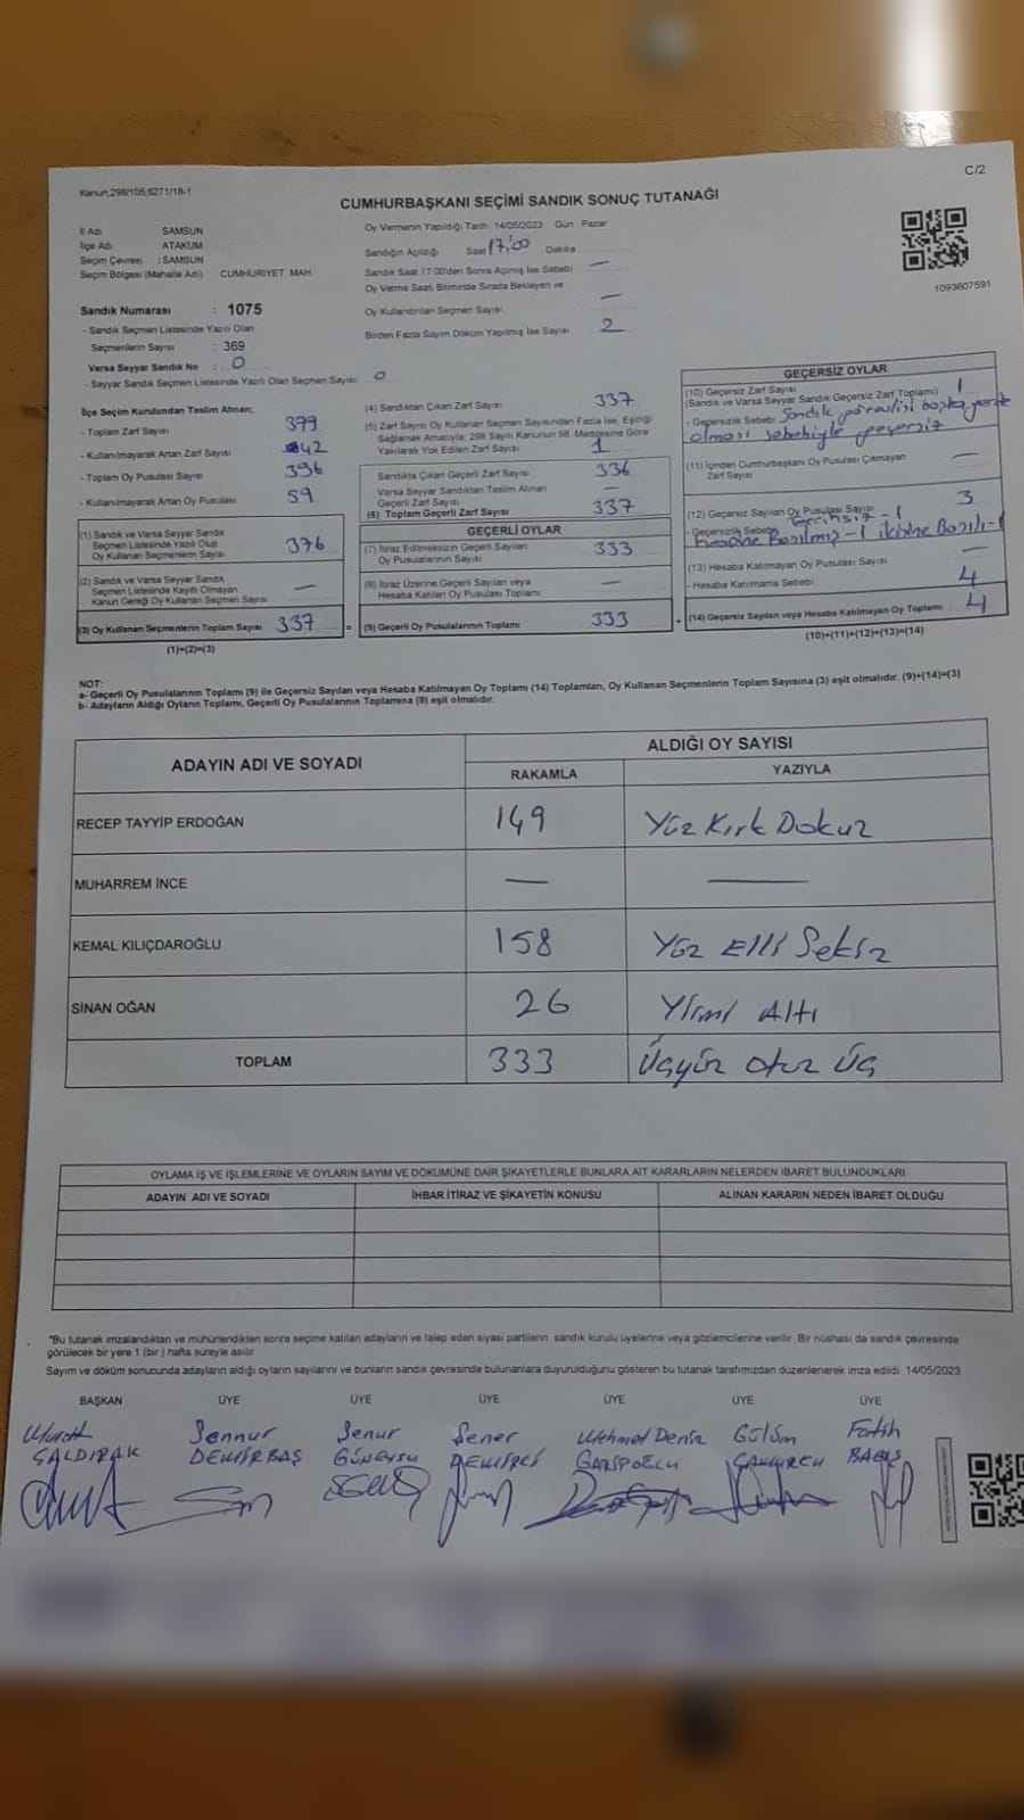 Kanun,298/105;6271/18-1
C/2
CUMHURBAŞKANI SEÇİMİ SANDIK SONUÇ TUTANAĞI
İl Adı SAMSUN
İlçe Adı ATAKUM
Seçim Çevresi : SAMSUN
Seçim Bölgesi (Mahalle Adı) CUMHURİYET MAH.
Sandık Numarası : 1075
- Sandık Seçmen Listesinde Yazılı Olan
Seçmenlerin Sayısı : 369
Varsa Seyyar Sandık No : 0
- Seyyar Sandık Seçmen Listesinde Yazılı Olan Seçmen Sayısı 0
Oy Vermenin Yapıldığı Tarih: 14/05/2023 Gün : Pazar
Sandığın Açıldığı Saat 17,00 Dakika
Sandık Saat 17.00'den Sonra Açılmış İse Sebebi —
Oy Verme Saati Bitiminde Sırada Bekleyen ve
Oy Kullandırılan Seçmen Sayısı —
Birden Fazla Sayım Döküm Yapılmış İse Sayısı 2
1093607591
İlçe Seçim Kurulundan Teslim Alınan;
- Toplam Zarf Sayısı 379
- Kullanılmayarak Artan Zarf Sayısı 42
- Toplam Oy Pusulası Sayısı 396
- Kullanılmayarak Artan Oy Pusulası 59
(1) Sandık ve Varsa Seyyar Sandık
Seçmen Listesinde Yazılı Olup
Oy Kullanan Seçmenlerin Sayısı 376
(2) Sandık ve Varsa Seyyar Sandık
Seçmen Listesinde Kayıtlı Olmayan
Kanun Gereği Oy Kullanan Seçmen Sayısı —
(3) Oy Kullanan Seçmenlerin Toplam Sayısı 337
(1)+(2)=(3)
(4) Sandıktan Çıkan Zarf Sayısı 337
(5) Zarf Sayısı Oy Kullanan Seçmen Sayısından Fazla İse, Eşitliği
Sağlamak Amacıyla, 298 Sayılı Kanunun 98. Maddesine Göre
Yakılarak Yok Edilen Zarf Sayısı 1
Sandıkta Çıkan Geçerli Zarf Sayısı 336
Varsa Seyyar Sandıktan Teslim Alınan
Geçerli Zarf Sayısı —
(6) Toplam Geçerli Zarf Sayısı 337
GEÇERLİ OYLAR
(7) İtiraz Edilmeksizin Geçerli Sayılan
Oy Pusulalarının Sayısı 333
(8) İtiraz Üzerine Geçerli Sayılan veya
Hesaba Katılan Oy Pusulası Toplamı —
= (9) Geçerli Oy Pusulalarının Toplamı 333
GEÇERSİZ OYLAR
(10) Geçersiz Zarf Sayısı
(Sandık ve Varsa Seyyar Sandık Geçersiz Zarf Toplamı) 1
- Geçersizlik Sebebi Sandık görevlisi başka yerde
olması sebebiyle geçersiz
(11) İçinden Cumhurbaşkanı Oy Pusulası Çıkmayan
Zarf Sayısı —
(12) Geçersiz Sayılan Oy Pusulası Sayısı 3
- Geçersizlik Sebebi -1
Basılmış -1 ikisine Basılı-1
(13) Hesaba Katılmayan Oy Pusulası Sayısı —
- Hesaba Katılmama Sebebi 4
+ (14) Geçersiz Sayılan veya Hesaba Katılmayan Oy Toplamı 4
(10)+(11)+(12)+(13)=(14)
NOT:
a- Geçerli Oy Pusulalarının Toplamı (9) ile Geçersiz Sayılan veya Hesaba Katılmayan Oy Toplamı (14) Toplamları, Oy Kullanan Seçmenlerin Toplam Sayısına (3) eşit olmalıdır. (9)+(14)=(3)
b- Adayların Aldığı Oyların Toplamı, Geçerli Oy Pusulalarının Toplamına (9) eşit olmalıdır.
ADAYIN ADI VE SOYADI ALDIĞI OY SAYISI
RAKAMLA YAZIYLA
RECEP TAYYİP ERDOĞAN 149 Yüz Kırk Dokuz
MUHARREM İNCE — —
KEMAL KILIÇDAROĞLU 158 Yüz Elli Sekiz
SİNAN OĞAN 26 Yirmi Altı
TOPLAM 333 Üçyüz otuz Üç
OYLAMA İŞ VE İŞLEMLERİNE VE OYLARIN SAYIM VE DÖKÜMÜNE DAİR ŞİKAYETLERLE BUNLARA AİT KARARLARIN NELERDEN İBARET BULUNDUKLARI
ADAYIN ADI VE SOYADI İHBAR İTİRAZ VE ŞİKAYETİN KONUSU ALINAN KARARIN NEDEN İBARET OLDUĞU
"Bu tutanak imzalandıktan ve mühürlendikten sonra seçime katılan adayların ve talep eden siyasi partilerin, sandık kurulu üyelerine veya gözlemcilerine verilir. Bir nüshası da sandık çevresinde
görülecek bir yere 1 (bir ) hafta süreyle asılır.
Sayım ve döküm sonucunda adayların aldığı oyların sayılarını ve bunların sandık çevresinde bulunanlara duyurulduğunu gösteren bu tutanak tarafımızdan düzenlenerek imza edildi. 14/05/2023
BAŞKAN ÜYE ÜYE ÜYE ÜYE ÜYE ÜYE
Murat Sennur Senur Şener Mehmet Deniz Gülüm Fatih
SALDIRAK DEMİRBAŞ